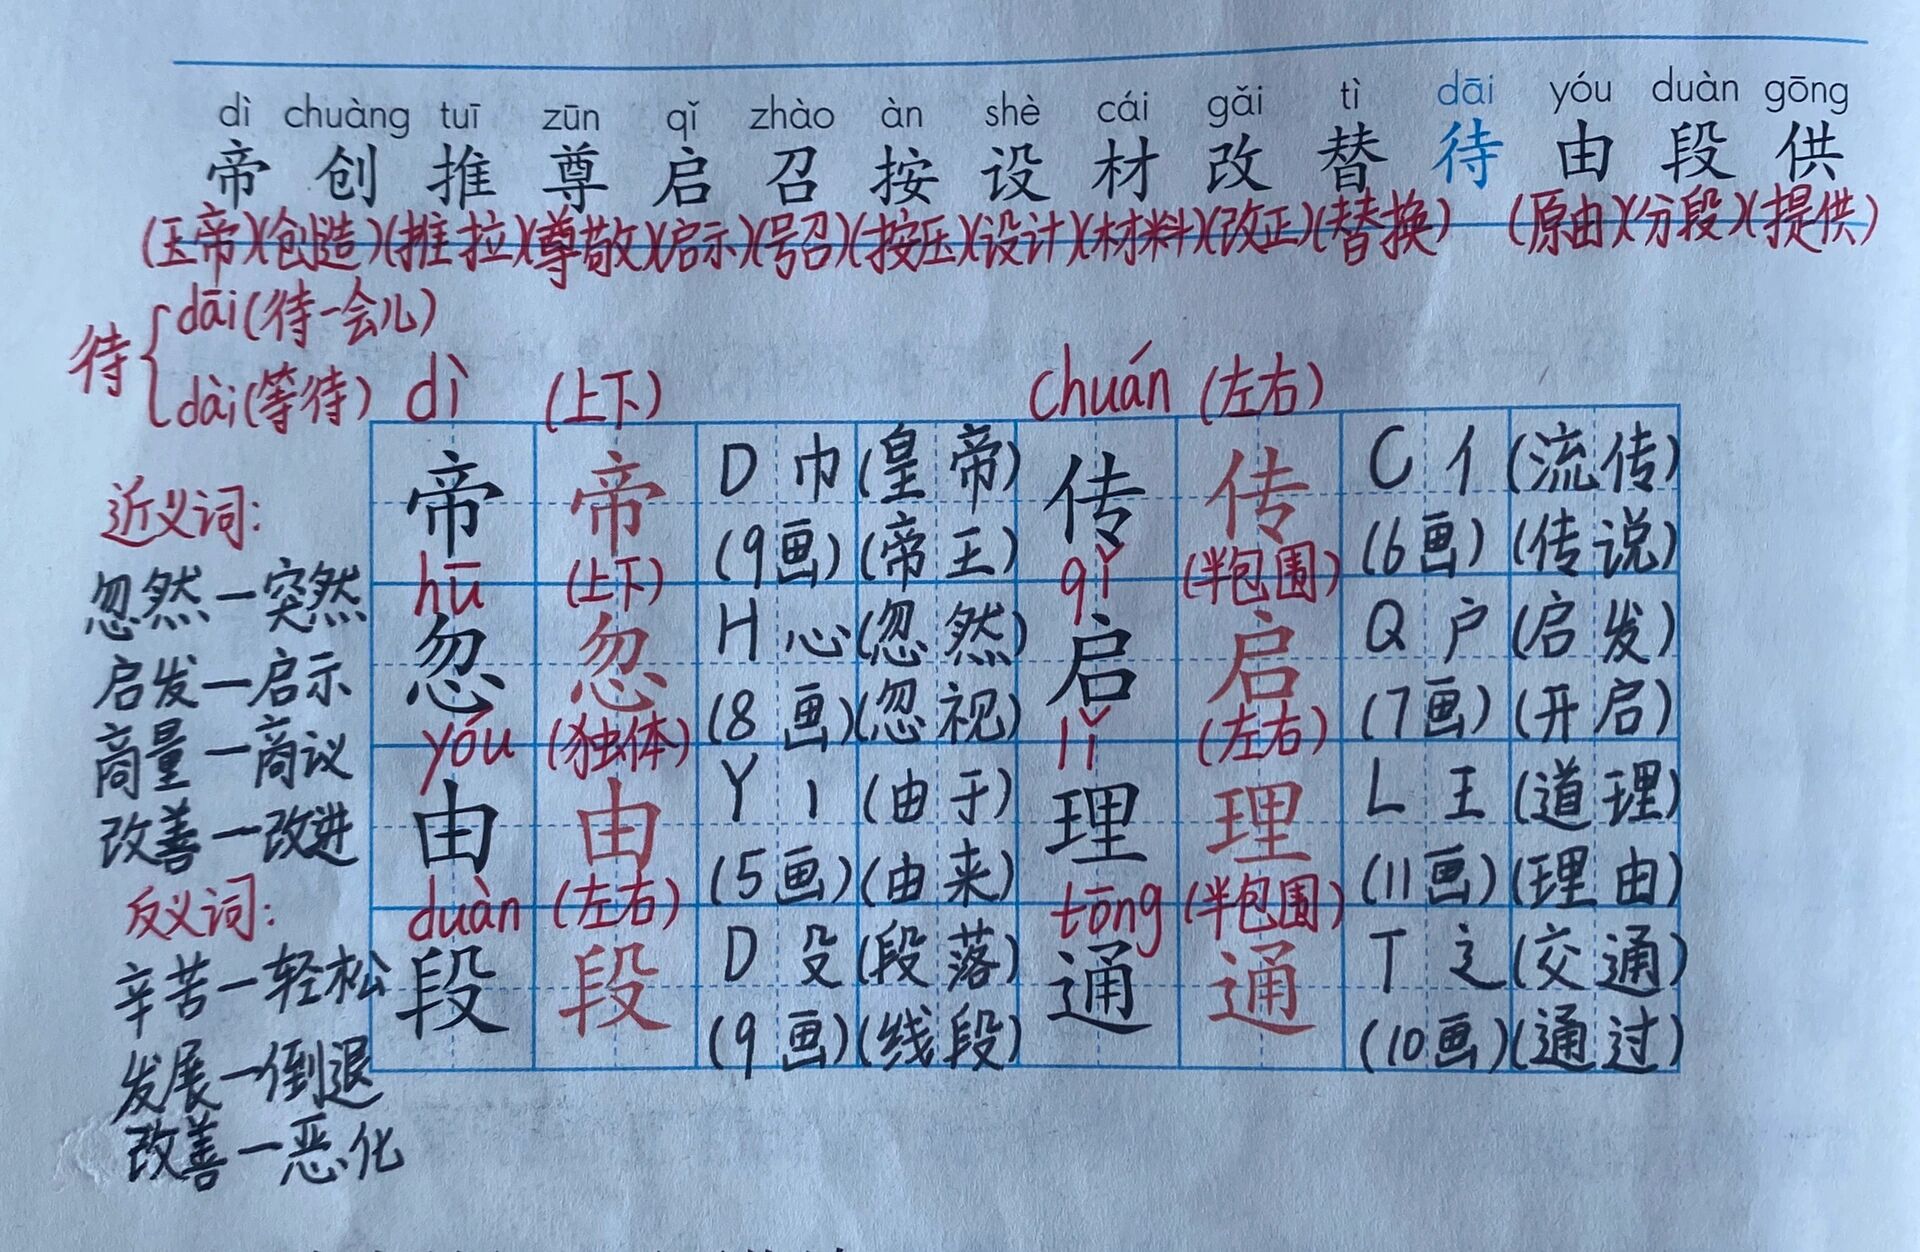 dì chuàng tuī zūn qǐ zhào àn shè cái gǎi tì dāi yóu duàn gōng
帝 创 推 尊 启 召 按 设 材 改 替 待 由 段 供
(玉帝)(创造)(推拉)(尊敬)(启示)(号召)(按压)(设计)(材料)(改正)(替换) (原由)(分段)(提供)
待
dāi(待一会儿)
dài(等待)
dì (上下) chuán (左右)
帝 帝 D 巾 (皇帝) 传 传 C 亻 (流传)
(9画) (帝王) (6画) (传说)
hū (上下) qǐ (半包围)
忽 忽 H 心 (忽然) 启 启 Q 户 (启发)
(8画) (忽视) (7画) (开启)
yóu (独体) lǐ (左右)
由 由 Y 丨 (由于) 理 理 L 王 (道理)
(5画) (由来) (11画) (理由)
duàn (左右) tōng (半包围)
段 段 D 殳 (段落) 通 通 T 辶 (交通)
(9画) (线段) (10画) (通过)
近义词:
忽然—突然
启发—启示
商量—商议
改善—改进
反义词:
辛苦—轻松
发展—倒退
改善—恶化